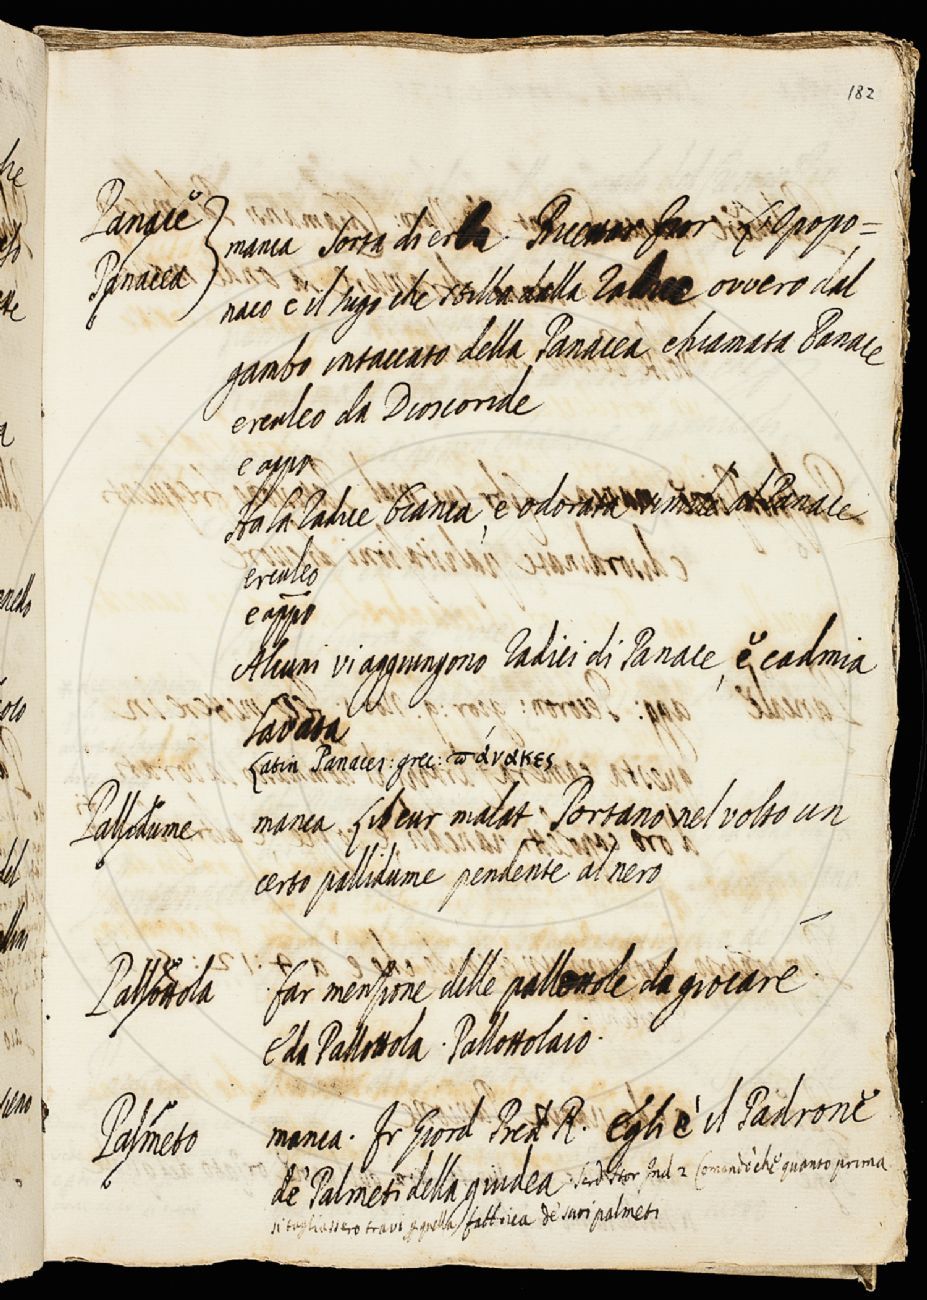 182
Panace
Panacea
manca sorta di erba Ricett. fior. L'Opopo=
naco è il sugo che stilla dalla radice ovvero dal
gambo intaccato della Panacea chiamata Panace
erculeo da Dioscoride
e appo
Ha la radice bianca, e odorata simile al Panace
erculeo
e appo
Alcuni vi aggiungono radici di Panace, e cadmia
lavata
Latin Panaces: grec: πάνακες
Pallidume
manca Lib cur malat Portano nel volto un
certo pallidume pendente al nero
Pallottola
far menzione delle pallottole da giocare
E da Pallottola. Pallottolaio.
Palmeto
manca. Fr Giord Pred R. Egli è il Padrone
de' Palmeti della giudea Serd Stor Ind 2 Comandò che quanto prima
si tagliassero travi quella fabbrica de' suoi palmeti